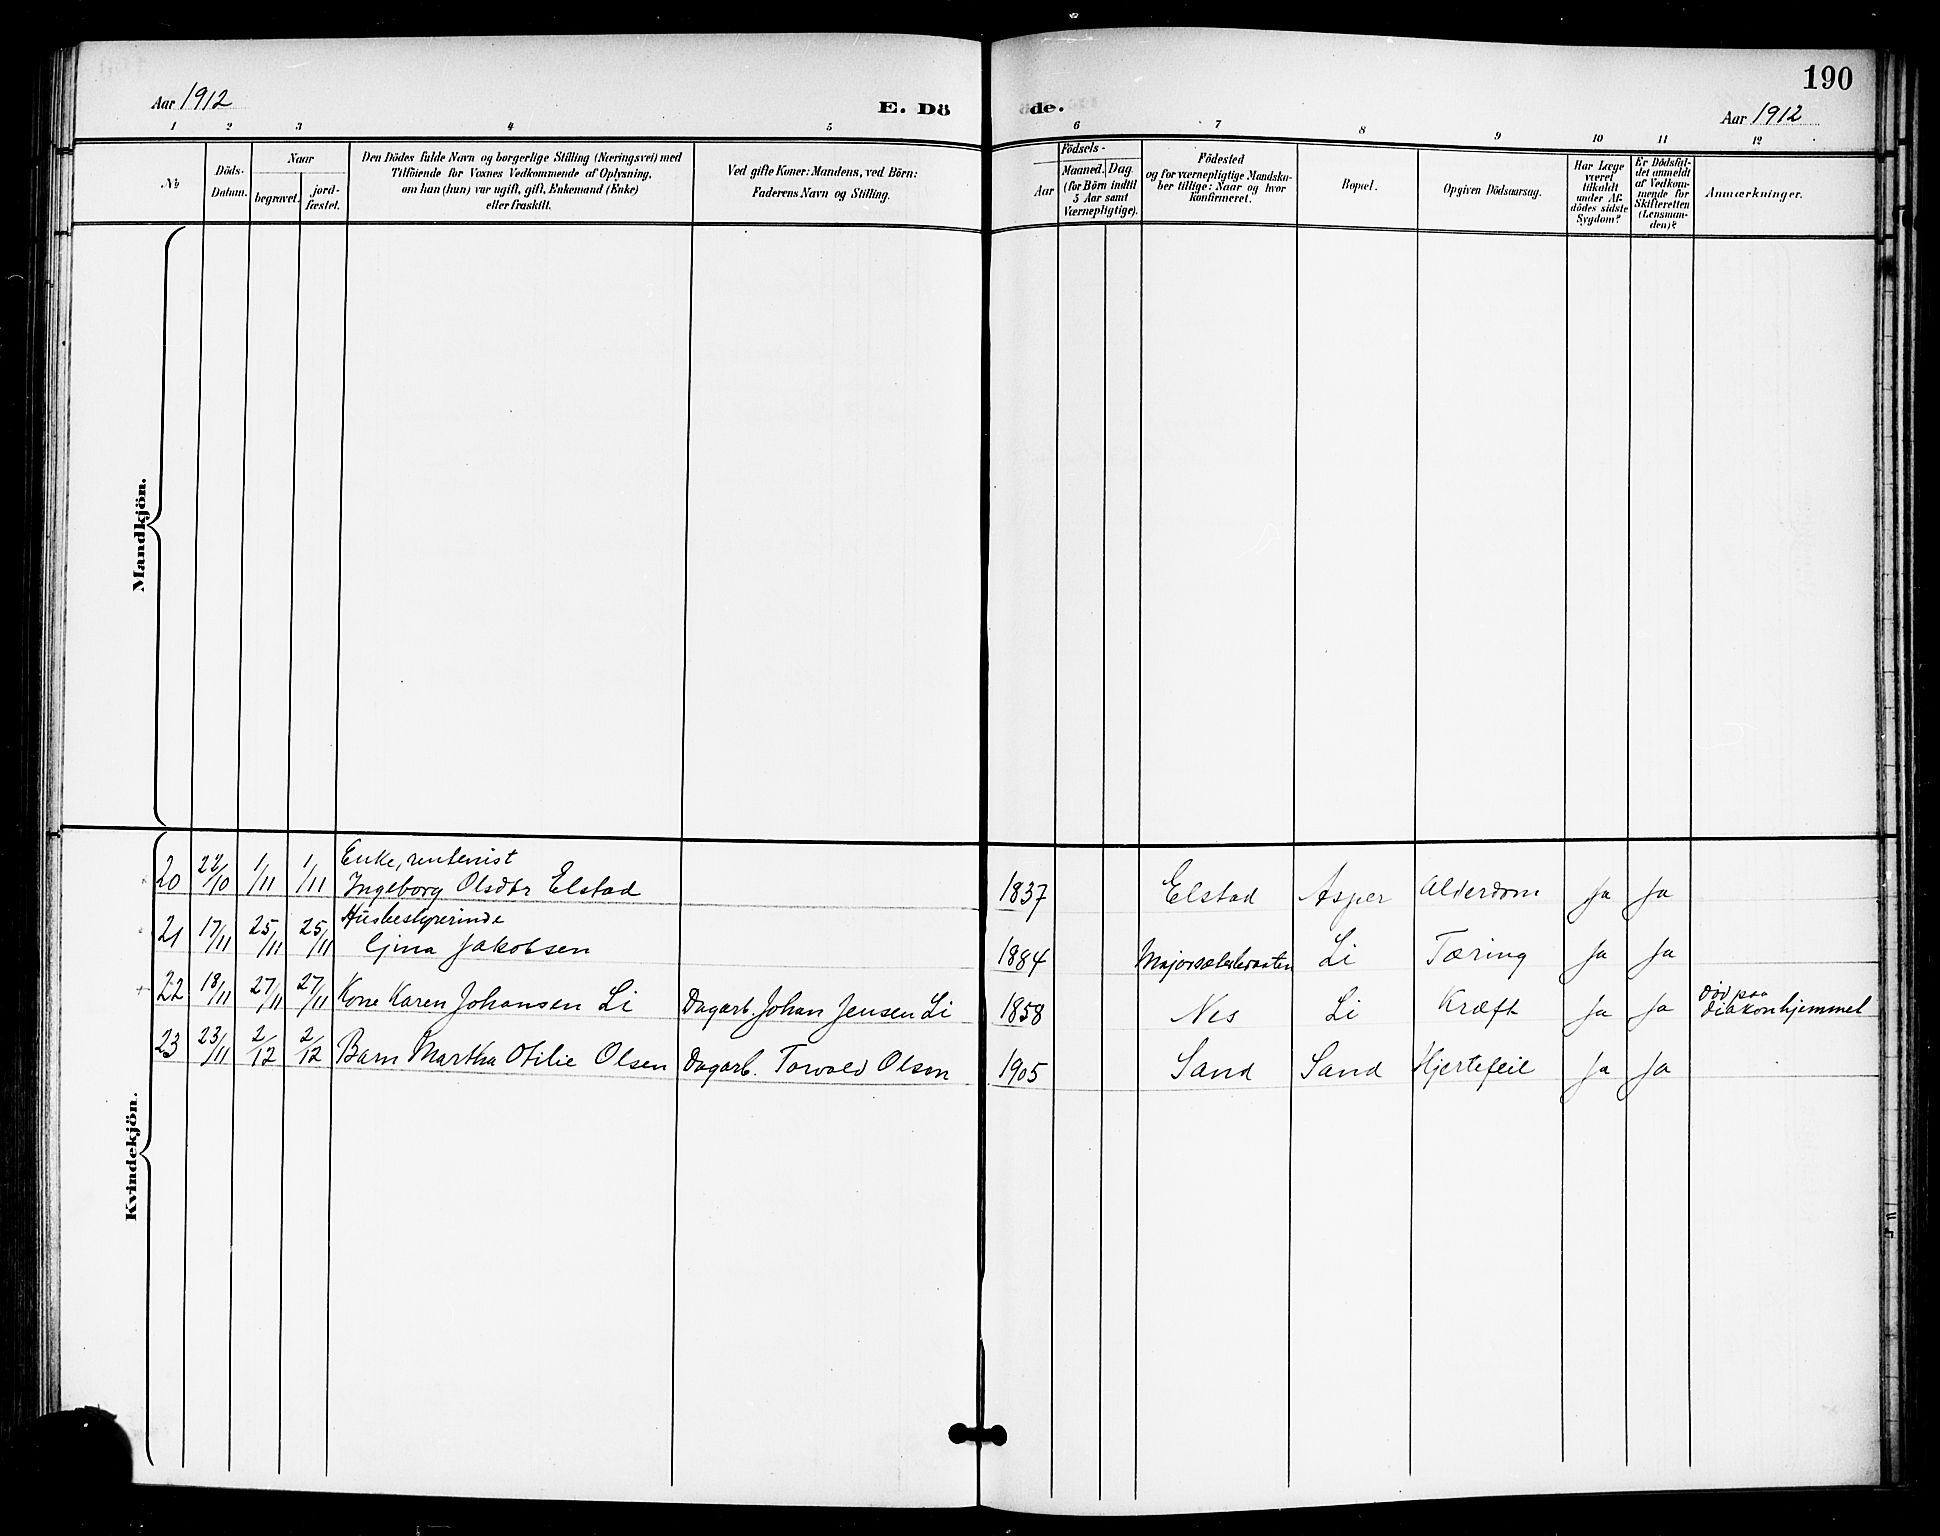 190
Aar 1912
E. Dö
de.
Aar 1912
1 2 3 4 5 6 7 8 9 10 11 12
No
Döds-
Datum.
Naar
begravet.
jord-
fæstet.
Den Dödes fulde Navn og borgerlige Stilling (Næringsvei) med
Tilföiende for Voxnes Vedkommende af Oplysning,
om han (hun) var ugift, gift, Enkemand (Enke)
eller fraskilt.
Ved gifte Koner: Mandens, ved Börn:
Faderens Navn og Stilling.
Födsels-
Aar
Maaned. Dag
(for Börn indtil
5 Aar samt
Værnepligtige).
Födested
og for værnepligtige Mandska-
ber tillige: Naar og hvor
konfirmeret.
Bopæl.
Opgiven Dödsaarsag.
Har Læge
været
tilkaldt
under Af-
dödes sidste
Sygdom?
Er Dödsfal-
det anmeldt
af Vedkom-
mende for
Skifteretten
(Lensman-
den)?
Anmærkninger.
Mandkjön.
Kvindekjön.
Enke, rentenist
20 22/10 1/11 1/11 Ingeborg Olsdtr Elstad 1837 Elstad Asper Alderdom Ja Ja
Husbestyrerinde
21 17/11 25/11 25/11 Gina Jakobsen 1884 Li Tæring Ja Ja
22 18/11 27/11 27/11 Kone Karen Johansen Li Dagarb. Johan Jensen Li 1858 Nes Li Kræft Ja Ja Död paa
diakonhjemmet
23 23/11 2/12 2/12 Barn Martha Otilie Olsen Dagarb. Torvald Olsen 1905 Sand Sand Hjertefeil Ja Ja